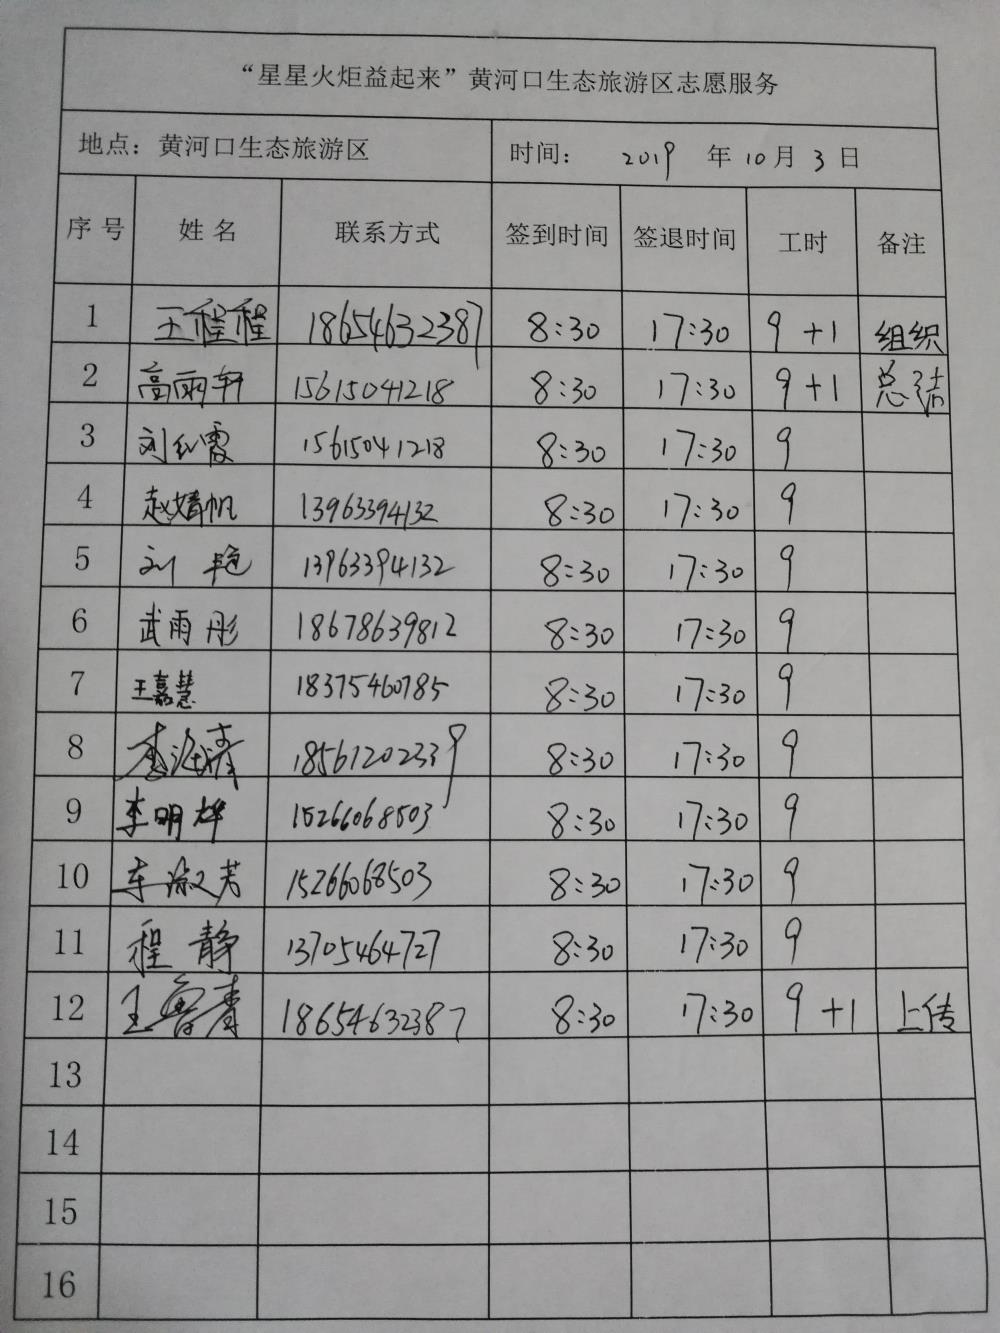 “星星火炬益起来”黄河口生态旅游区志愿服务
地点：黄河口生态旅游区 时间： 2019 年 10 月 3 日
序号 姓名 联系方式 签到时间 签退时间 工时 备注
1 王程程 18654632387 8:30 17:30 9+1 组织
2 高雨轩 15615041218 8:30 17:30 9+1 总结
3 刘红霞 15615041218 8:30 17:30 9
4 赵婧帆 13963394132 8:30 17:30 9
5 刘艳 13963394132 8:30 17:30 9
6 武雨彤 18678639812 8:30 17:30 9
7 王嘉慧 18375460785 8:30 17:30 9
8 18561202339 8:30 17:30 9
9 李明烨 15266068503 8:30 17:30 9
10 车淑芳 15266068503 8:30 17:30 9
11 程静 13705464727 8:30 17:30 9
12 王鲁青 18654632387 8:30 17:30 9+1 上传
13
14
15
16